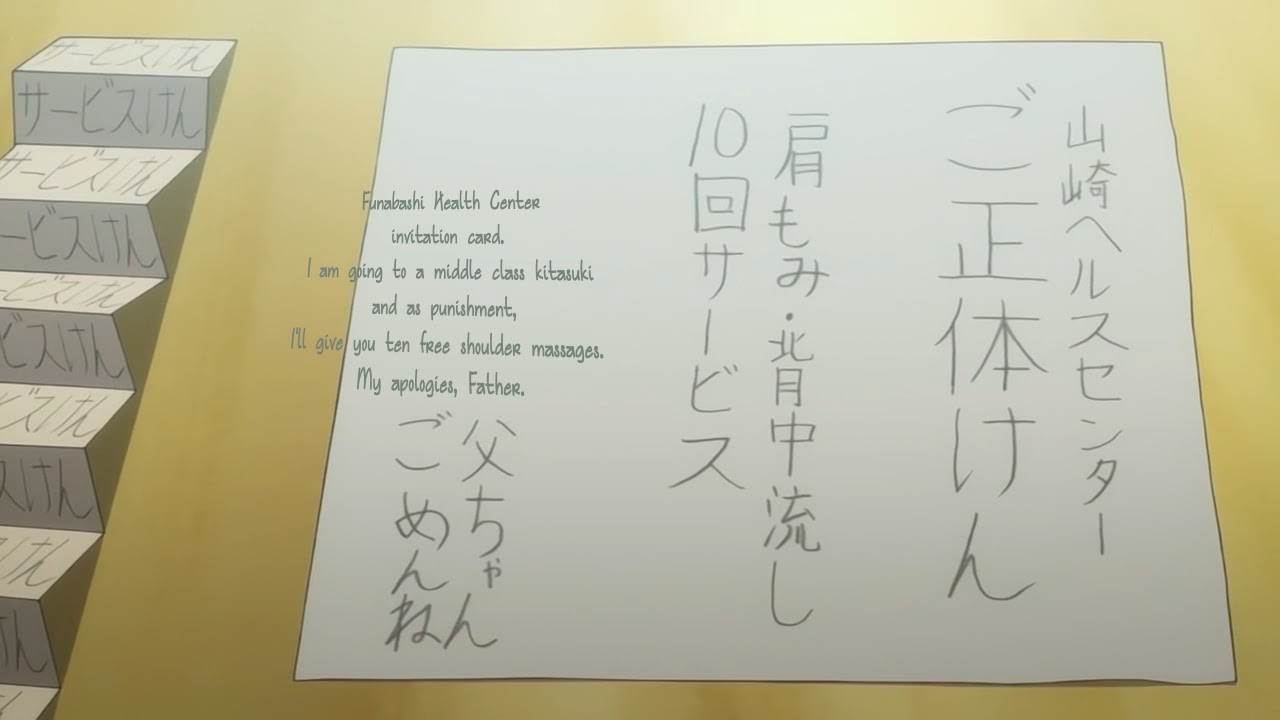 山崎ヘルスセンター
ご正体けん
肩もみ・背中流し
10回サービス
父ちゃん
ごめんね
Funabashi Health Center
invitation card.
I am going to a middle class kitasuki
and as punishment,
I'll give you ten free shoulder massages.
My apologies, Father.
サービスけん
サービスけん
サービスけん
ービスけん
ービスけん
ービスけん
ビスけん
スけん
けん
けん